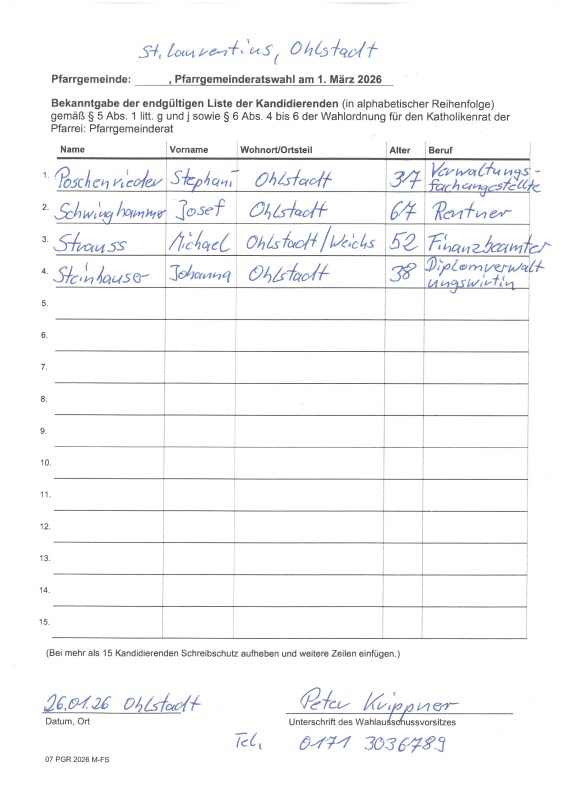 St. Laurentius, Ohlstadt
Pfarrgemeinde: ______, Pfarrgemeinderatswahl am 1. März 2026
Bekanntgabe der endgültigen Liste der Kandidierenden (in alphabetischer Reihenfolge)
gemäß § 5 Abs. 1 litt. g und j sowie § 6 Abs. 4 bis 6 der Wahlordnung für den Katholikenrat der
Pfarrei: Pfarrgemeinderat
Name Vorname Wohnort/Ortsteil Alter Beruf
1. Poschenrieder Stephani Ohlstadt 37 Verwaltungs-
fachangestellte
2. Schwinghammer Josef Ohlstadt 67 Rentner
3. Strauss Michael Ohlstadt/Weichs 52 Finanzbeamter
4. Steinhauser Johanna Ohlstadt 38 Diplomverwalt
ungswirtin
5.
6.
7.
8.
9.
10.
11.
12.
13.
14.
15.
(Bei mehr als 15 Kandidierenden Schreibschutz aufheben und weitere Zeilen einfügen.)
26.01.26 Ohlstadt Peter Krippner
Datum, Ort Unterschrift des Wahlausschussvorsitzes
Tel. 0171 3036789
07 PGR 2026 M-FS